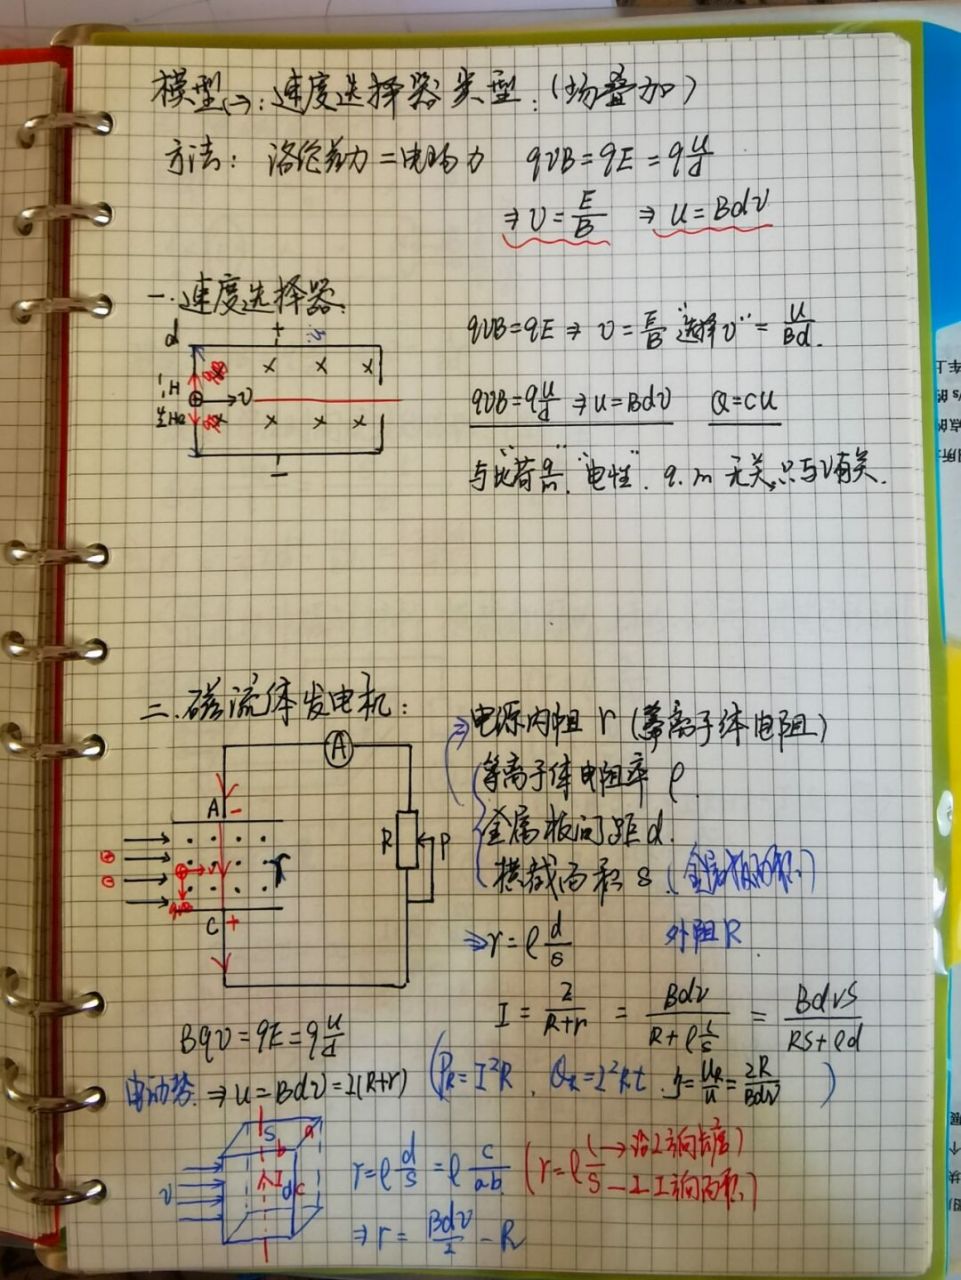 模型(一): 速度选择器类型: (场叠加)
方法: 洛伦兹力=电场力 qvB=qE=q u/d
⇒ v=E/B ⇒ u=Bdv
一.速度选择器
qvB=qE ⇒ v=E/B "选择v" = u/Bd.
qvB=q u/d ⇒ u=Bdv Q=CU
与"比荷 q/m"."电性".q.m无关,只与v有关.
d + × × ×
¹₁H qvB
⊕ v
⁴₂He × × × ×
−
二.磁流体发电机:
⇒电源内阻 r (等离子体电阻)
等离子体电阻率 ρ.
金属板间距d.
横截面积 s (金属板面积)
⇒ r=ρ d/s 外阻R
A
A −
R P
r
qvB
C +
I = /R+r = Bdv/R+ρ /s = BdvS/RS+ρd
Bqv=qE=q u/d
电动势 ⇒ u=Bdv=I(R+r) (P_R=I²R. Q_R=I²Rt. η=U_R/u=IR/Bdv)
S a
b
v I d c
r=ρ d/s=ρ c/ab (r=ρ l/s → 沿I方向长度)
— ⊥I方向面积
⇒ r= Bdv/I − R